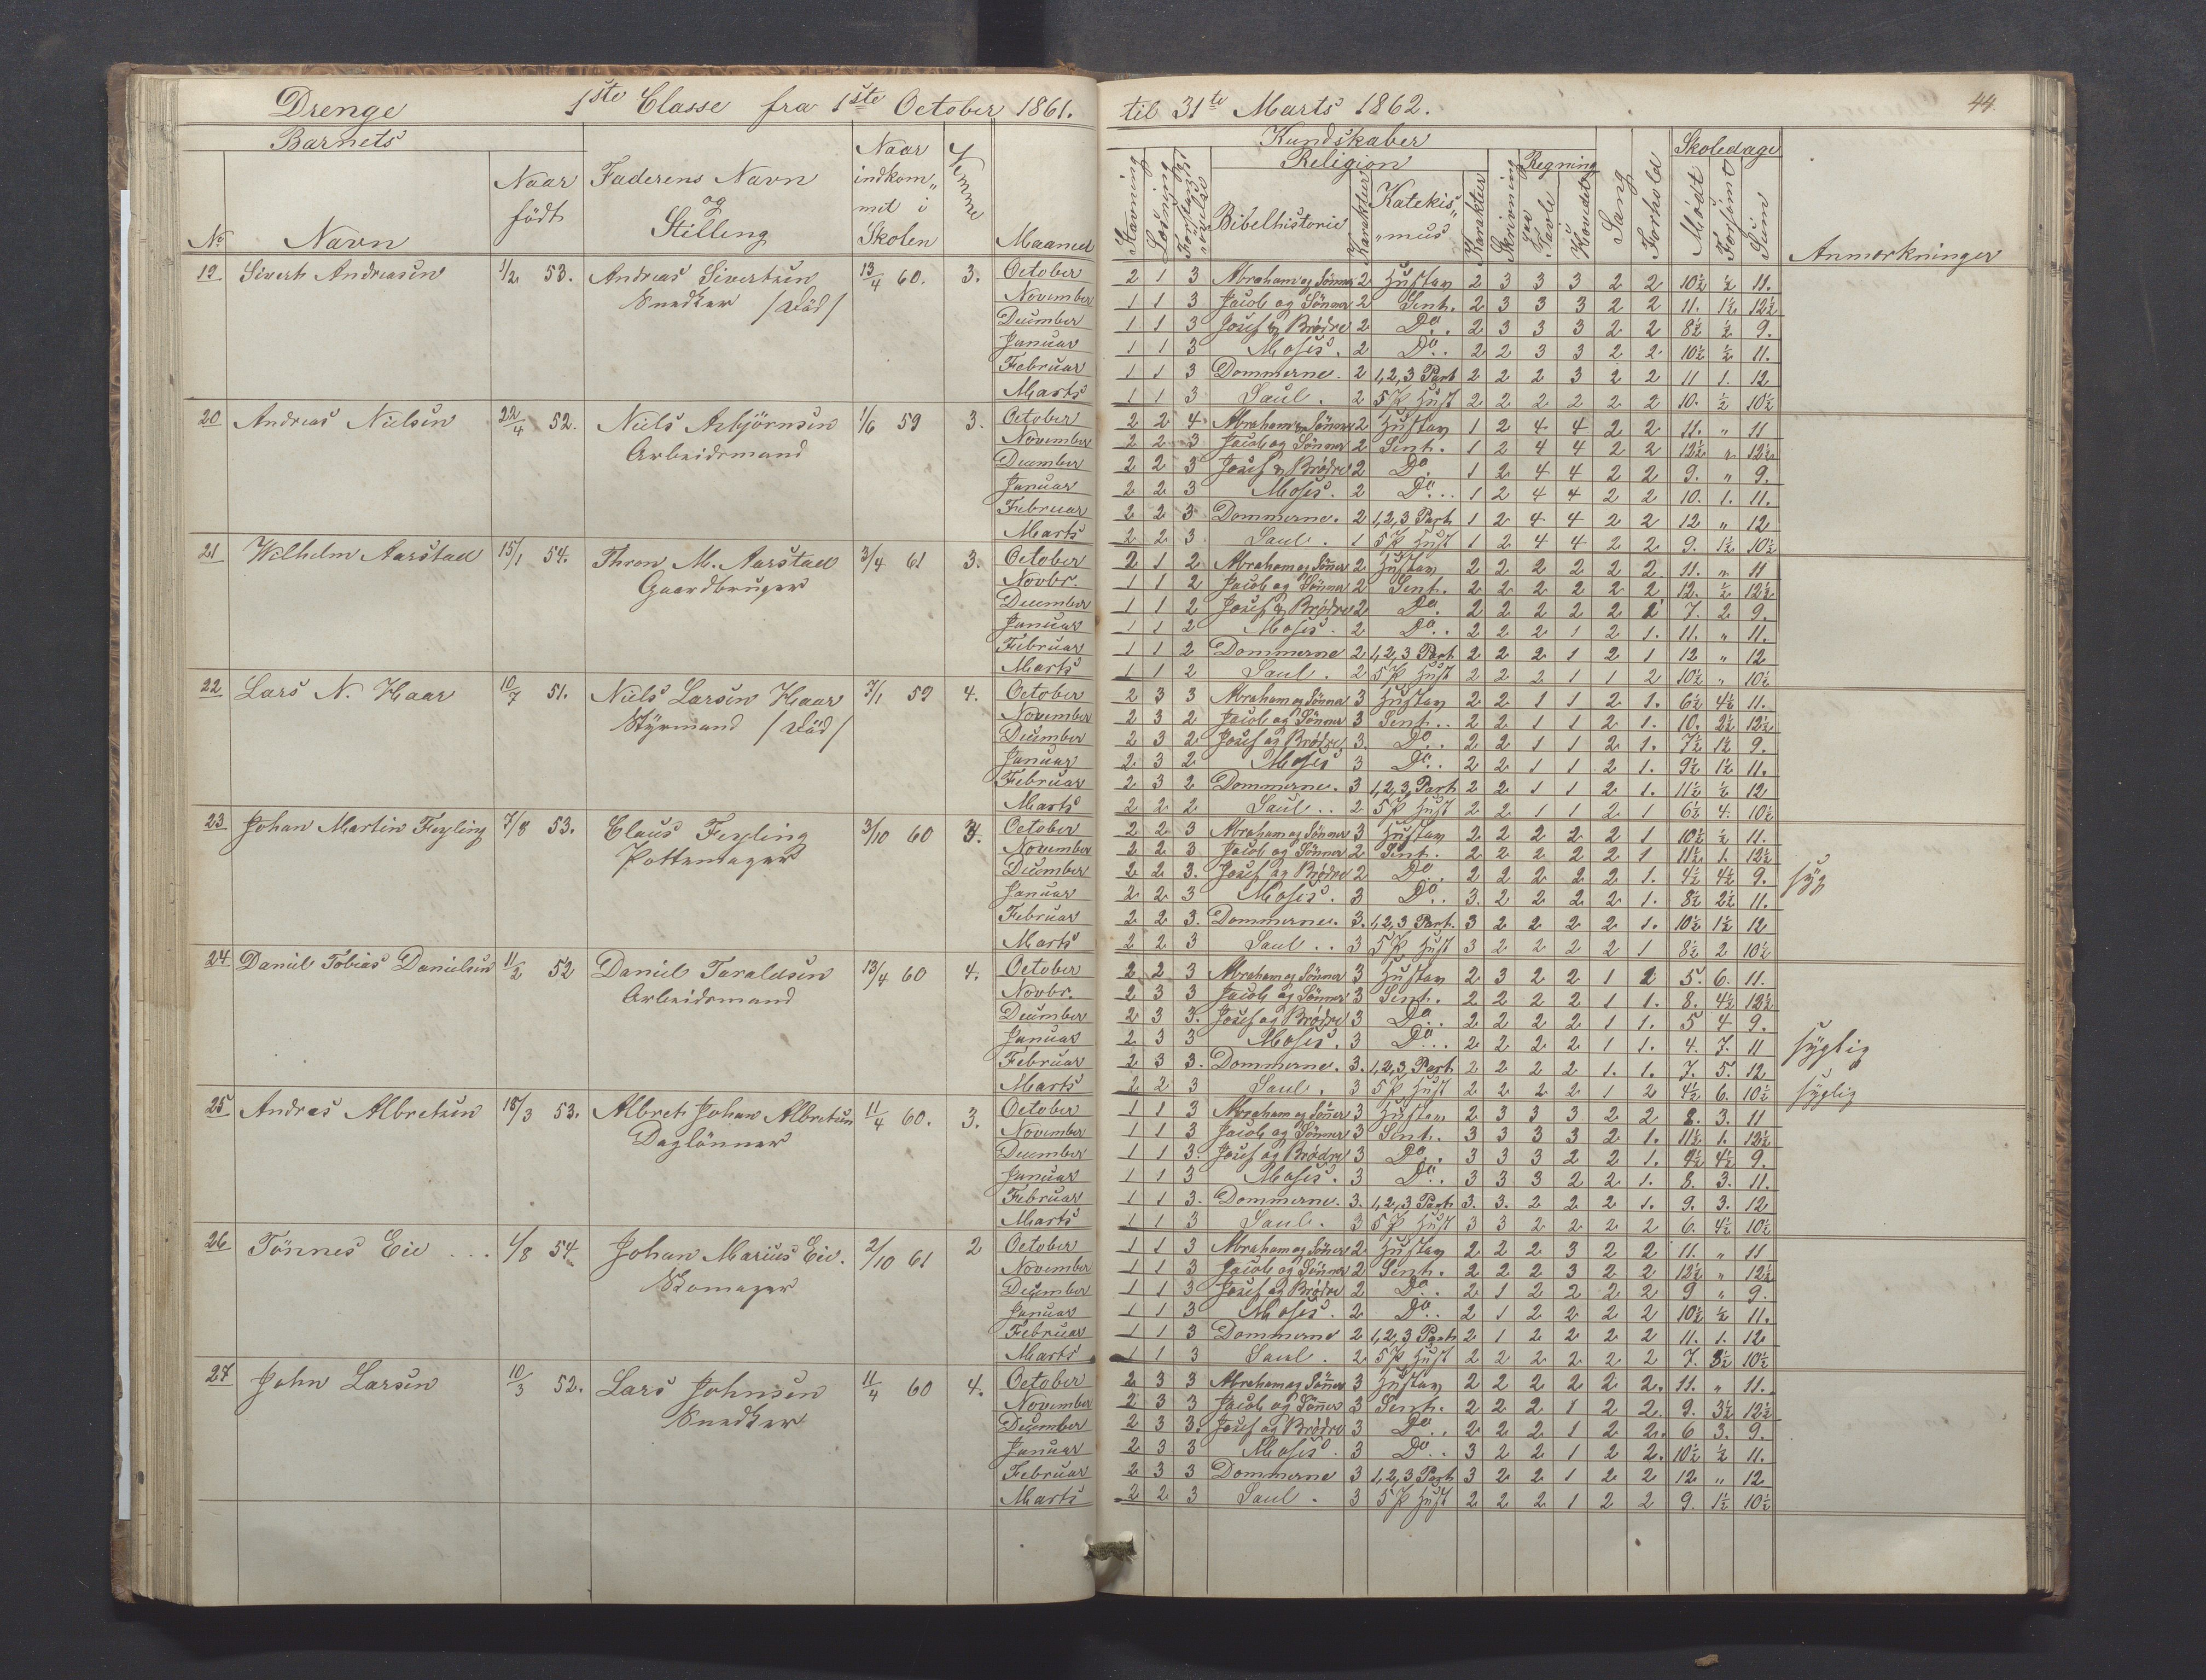 Drenge 1ste Classe fra 1ste October 1861. til 31te Marts 1862. 44.
Barnets
No Navn
Naar födt
Faderens Navn og Stilling
Naar indkom„ met i Skolen
Nemme
Maaned
Kundskaber
Stavning Læsning
Religion
Bibelhistorie Karakter Katekis„ „mus Karakter
Skrivning
Regning
paa Tavle i Hovedet
Sang Forhold
Skoledage
Mødt Forsømt Sum
Anmærkninger
19 Sivert Andreasen 1/2 53. Andreas Sivertsen 13/4 60. 3.
Snedker /död/
October 2 1 3 Abraham og Sönner 2 2 3 3 3 2 2 10½ ½ 11.
November 1 1 3 Jacob og Sönner 2 Sent. 2 3 3 3 2 2 11. 1½ 12½
December 1 1 3 Josef og Brödre 2 Do. 2 3 3 3 2 2 8½ ½ 9.
Januar 1 1 3 Moses. 2 Do.. 2 2 3 3 2 2 10½ ½ 11.
Februar 1 1 3 Dommerne. 2 1,2,3 Part 2 2 2 3 2 2 11 1. 12
Marts 1 1 3 Saul. 2 2 2 2 2 2 2 10. ½ 10½
20 Andreas Nielsen 22/4 52. Niels Asbjörnsen 1/6 59 3.
Arbeidsmand
October 2 2 4 Abraham og Sönner 2 1 2 4 4 2 2 11. „ 11
November 2 2 3 Jacob og Sönner 2 Sent. 1 2 4 4 2 2 12½ „ 12½
December 2 2 3 Josef og Brödre 2 Do. 1 2 4 4 2 2 9. „ 9.
Januar 2 2 3 Moses. 2 Do... 1 2 4 4 2 2 10. 1. 11.
Februar 2 2 3 Dommerne. 2 1,2,3 Part 1 2 4 4 2 2 12 „ 12
Marts 2 2 3 Saul. 1 1 2 4 4 2 2 9. 1½ 10½
21 Wilhelm Aarstad 15/1 54. Thron M. Aarstad 3/4 61 3.
Gaardbruger
October 2 1 2 Abraham og Sönner 2 2 2 2 2 2 2 11. „ 11
Novbr. 1 1 2 Jacob og Sönner 2 Sent. 2 2 2 2 2 2 12. ½ 12½
December 1 1 2 Josef og Brödre 2 Do. 2 2 2 2 2 2 7. 2. 9.
Januar 1 1 2 Moses. 2 Do.. 2 2 2 1 2 1. 11. „ 11.
Februar 1 1 2 Dommerne 2 1,2,3 Part 2 2 2 1 2 1 12 „ 12
Marts 1 1 2 Saul. 2 2 2 2 1 1 2 10½ „ 10½
22 Lars N. Haar 10/7 51. Niels Larsen Haar 7/1 59 4.
Styrmand /död/
October 2 3 3 Abraham og Sönner 3 2 2 1 1 2 1. 6½ 4½ 11.
November 2 3 2 Jacob og Sönner 3 Sent.. 2 2 1 1 2 1. 10. 2½ 12½
December 2 3 2 Josef og Brödre 3. Do.. 2 2 1 1 2 1. 7½ 1½ 9.
Januar 2 3 2 Moses 3 Do.. 2 2 1 1 2 1. 9½ 1½ 11.
Februar 2 3 2 Dommerne. 3 1,2,3 Part 2 2 1 1 2 1. 11½ ½ 12
Marts 2 2 2 Saul.. 2 2 2 1 1 2 1 6½ 4. 10½
23 Johan Martin Feyling 7/8 53. Claus Feyling 3/10 60 3.
Pottemager
October 2 2 3 Abraham og Sönner 3 2 2 2 2 2 1 10½ ½ 11.
November 2 2 3 Jacob og Sönner 2 Sent. 2 2 2 2 2 1 11½ 1. 12½
December 2 2 3. Josef og Brödre 2 Do.. 2 2 2 2 2 1. 4½ 4½ 9. syg
Januar 2 2 3 Moses. 3 Do.. 3. 2 2 2 2 1. 8½ 2½ 11.
Februar 2 2 3. Dommerne. 3. 1,2,3 Part. 3 2 2 2 2 1. 10½ 1½ 12
Marts 2 2 3 Saul.. 3 3 2 2 2 2 1 8½ 2 10½
24 Daniel Tobias Danielsen 11/2 52 Daniel Taraldsen 13/4 60 4.
Arbeidsmand
October 2 2 3 Abraham og Sönner 3 2 3 2 2 1 2 5. 6. 11.
Novbr. 2 3 3 Jacob og Sönner 3 Sent. 2 2 2 2 1 1. 8. 4½ 12½
December 2 3 3. Josef og Brödre 3 Do.. 2 2 2 2 1 1. 5 4 9.
Januar 2 3 3 Moses. 3 Do... 2 2 2 2 1 1. 4. 7. 11 syglig
Februar 2 3 3. Dommerne. 3. 1,2,3 Part 2 2 2 2 1. 1. 7. 5. 12
Marts 2 2 3 Saul. 3 2 2 2 2 1 2 4½ 6. 10½ syglig
25 Andreas Albretsen 15/3 53. Albret Johan Albretsen 11/4 60. 3.
Daglönner
October 1 1 3 Abraham og Sönner 3 2 3 3 3 2 2 8. 3. 11
November 1 1 3 Jacob og Sönner 3 Sent. 3 3 3 3 2 1. 11½ 1. 12½
December 1 1 3. Josef og Brödre 3 Do.. 3 3 3 2 2 1. 4½ 4½ 9.
Januar 1 1 3 Moses. 3 Do.. 3 3 3 2 2 1. 8. 3. 11.
Februar 1 1 3. Dommerne. 3. 1,2,3 Part 3. 3. 2 2 2 1. 9. 3. 12
Marts 1 1 3 Saul. 3 3 3 2 2 2 2 6. 4½ 10½
26 Tönnes Eie ... 1/8 54 Johan Marius Eie. 2/10 61 2
Skomager
October 1 1 3 Abraham og Sönner 2 2 2 2 3 2 2 11. „ 11
November 1 1 3 Jacob og Sönner 2 Sent. 2 2 2 3 2 2 12½ „ 12½
December 1 1 3 Josef og Brödre 2 Do.. 2 1 2 2 2 2 9 „ 9.
Januar 1 1 3 Moses. 2 Do.. 2 1 2 2 2 2 10½ ½ 11.
Februar 1 1 3 Dommerne 2 1,2,3 Part 2 1 2 2 2 2 11. 1. 12
Marts 1 1 3 Saul. 2 2 2 2 2 2 2 7. 3½ 10½
27 John Larsen 10/3 52. Lars Johnsen 11/4 60 4.
Snedker
October 2 3 3 Abraham og Sönner 3 2 2 2 2 2 2. 11. „ 11.
November 2 3 3 Jacob og Sönner 3 Sent. 2 2 2 1 2 2. 9. 3½ 12½
December 2 3 3. Josef og Brödre 3 Do.. 2 2 2 1 2 2. 6 3. 9.
Januar 2 3 3 Moses. 3 Do.. 3 2 2 1 2 2. 10½ ½ 11.
Februar 2 3 3 Dommerne 3 1,2,3 Part 3 2 2 1 2 2 12 „ 12
Marts 2 2 3 Saul. 3 2 2 2 1 2 2 9. 1½ 10½